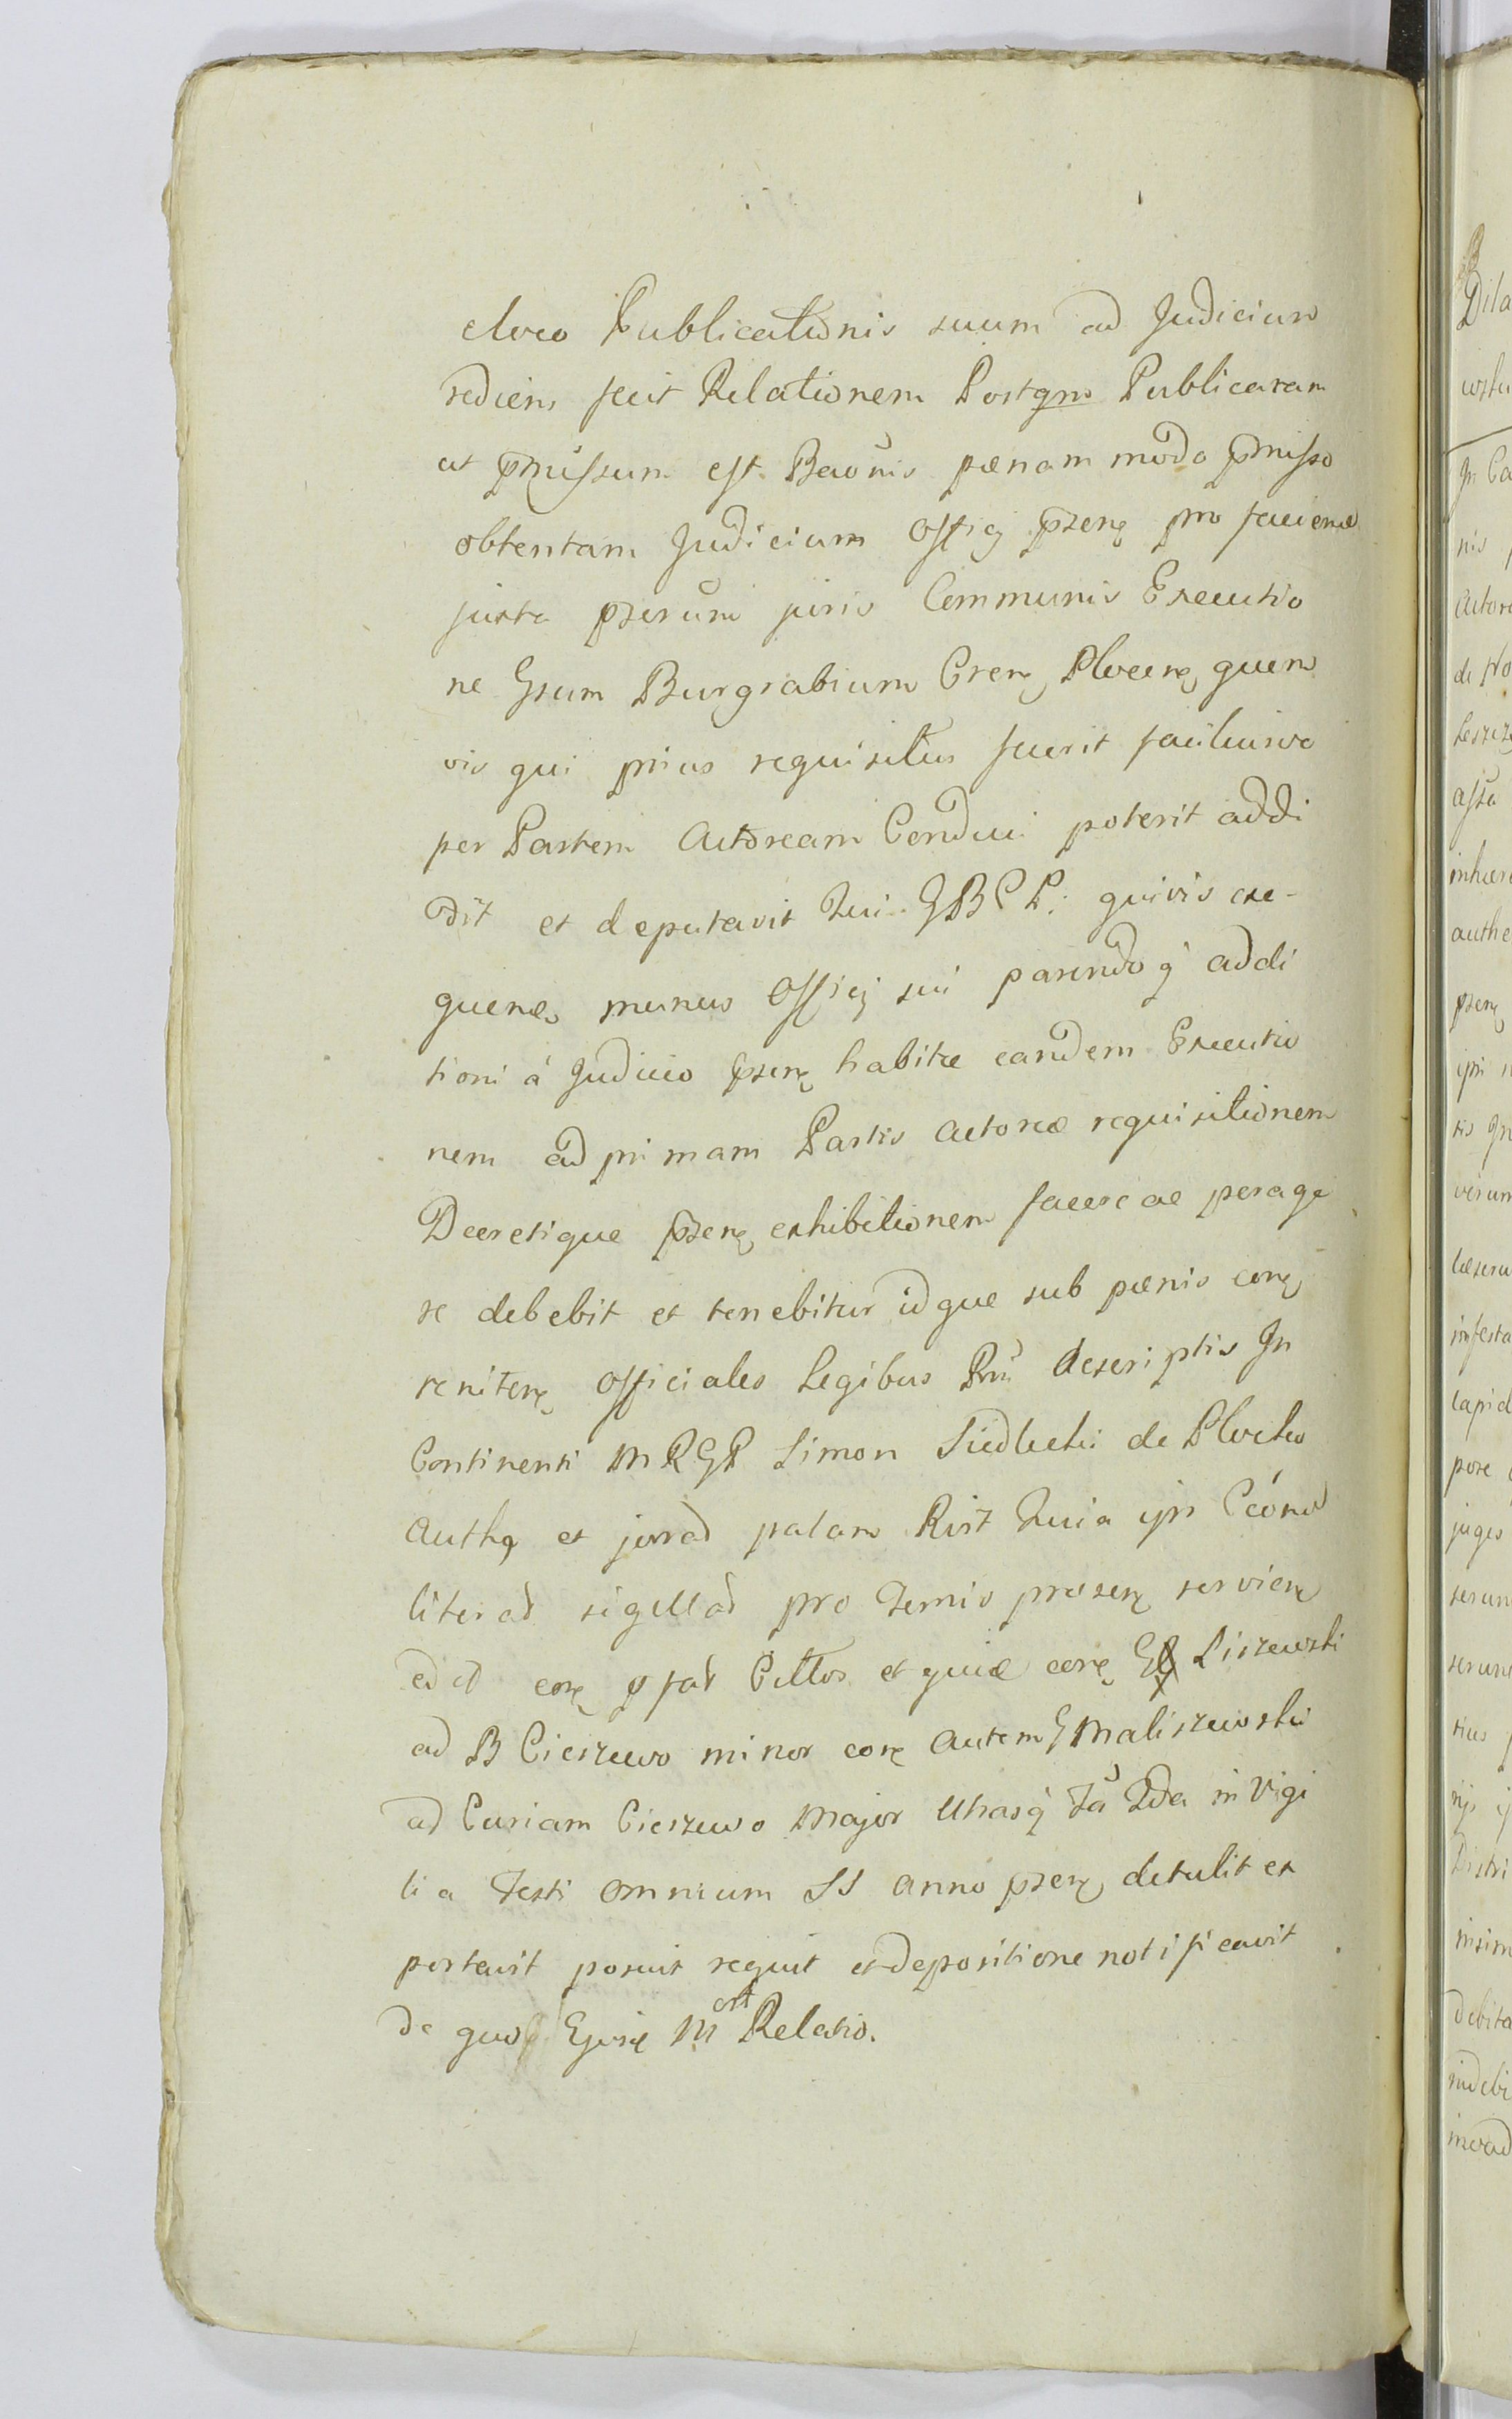 eloco Publicationis suum ad Judicium
rediens fecit Relationem Postqm Publicatam
ut pmissum est Baonis pænam modo pmisso
obtentam Judicium Officij pzenę pro faciend
juxta pzerum juris Communis Executio
ne Gsum Burgrabium Cren Plocen quem
vis qui prius requisitus fuerit faciliusve
per Partem Actoream Conduci poterit addi
dit et deputavit Qui GBCP: quivis exe-
quendo munus Officij sui parendoq addi
tioni á Judicio pzenę habitæ eandem Executio
nem ad primam Partis Actoreæ requisitionem
Decretique pzenę exhibitionem facere ac perage
re debebit et tenebitur idque sub pænis conę
renitenę Officiales Legibus Rni descriptis In
Continenti MRGP Simon Siedlecki de Plocko
Authę et jurad palam Rivit Quia ipse Cconnd
literad sigillad pro Termis præsenę servienę
ed conę Cittos et quid conę G Liszewski
ad B Cieszewo minor conę autem G Maliszewski
ad Curiam Cieszewo Major Utrasq in Vigi
lia Festi Omnium SS anno pzenę detulit et
portavit posuit requit et depositione notificavit
de quo Ejusę M Relatio.
Dila
In Ca
nis
Actore
de No
assa
inhær
authe
pzenę
tis In
verum
infesta
lapid
pore
juges
serun
serun
tius
Distri
insim
debita
indebi
invad